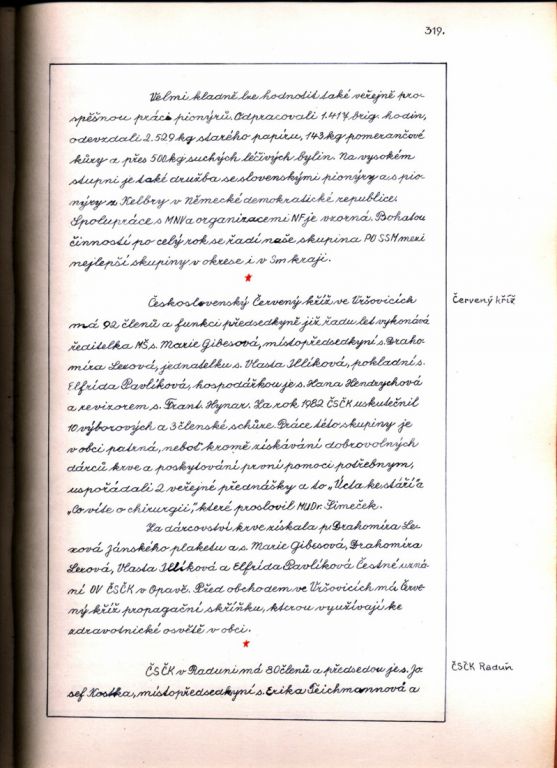 319.
Velmi kladně lze hodnotit také veřejně pro-
spěšnou práci pionýrů. Odpracovali 1.417 brig. hodin,
odevzdali 2.529 kg starého papíru, 143 kg pomerančové
kůry a přes 500 kg suchých léčivých bylin. Na vysokém
stupni je také družba se slovenskými pionýry a s pio-
nýry z Kelbry v Německé demokratické republice.
Spolupráce s MNV a organizacemi NF je vzorná. Bohatou
činností po celý rok se řadí naše skupina PO SSM mezi
nejlepší skupiny v okrese i v Sm kraji.
Československý Červený kříž ve Vršovicích
Červený kříž
má 92 členů a funkci předsedkyně již řadu let vykonává
ředitelka MŠ s. Marie Gibesová, místopředsedkyní s. Draho-
míra Lexová, jednatelkou s. Vlasta Illíková, pokladní s.
Elfrída Pavlíková, hospodářkou je s. Hana Hendrychová
a revizorem s. Frant. Hynar. Za rok 1982 ČSČK uskutečnil
10 výborových a 3 členské schůze. Práce této skupiny je
v obci patrná, neboť kromě získávání dobrovolných
dárců krve a poskytování první pomoci potřebným,
uspořádali 2 veřejné přednášky a to „Úcta ke stáří" a
„Co víte o chirurgii", které proslovil MUDr. Šimeček.
Za dárcovství krve získala p. Drahomíra Le-
xová Jánského plaketu a s. Marie Gibesová, Drahomíra
Lexová, Vlasta Illíková a Elfrída Pavlíková Čestné uzná-
ní OV ČSČK v Opavě. Před obchodem ve Vršovicích má Červe-
ný kříž propagační skříňku, kterou využívají ke
zdravotnické osvětě v obci.
ČSČK v Raduni má 80 členů a předsedou je s. Jo-
ČSČK Raduň
sef Kostka, místopředsedkyní s. Erika Teichmannová a